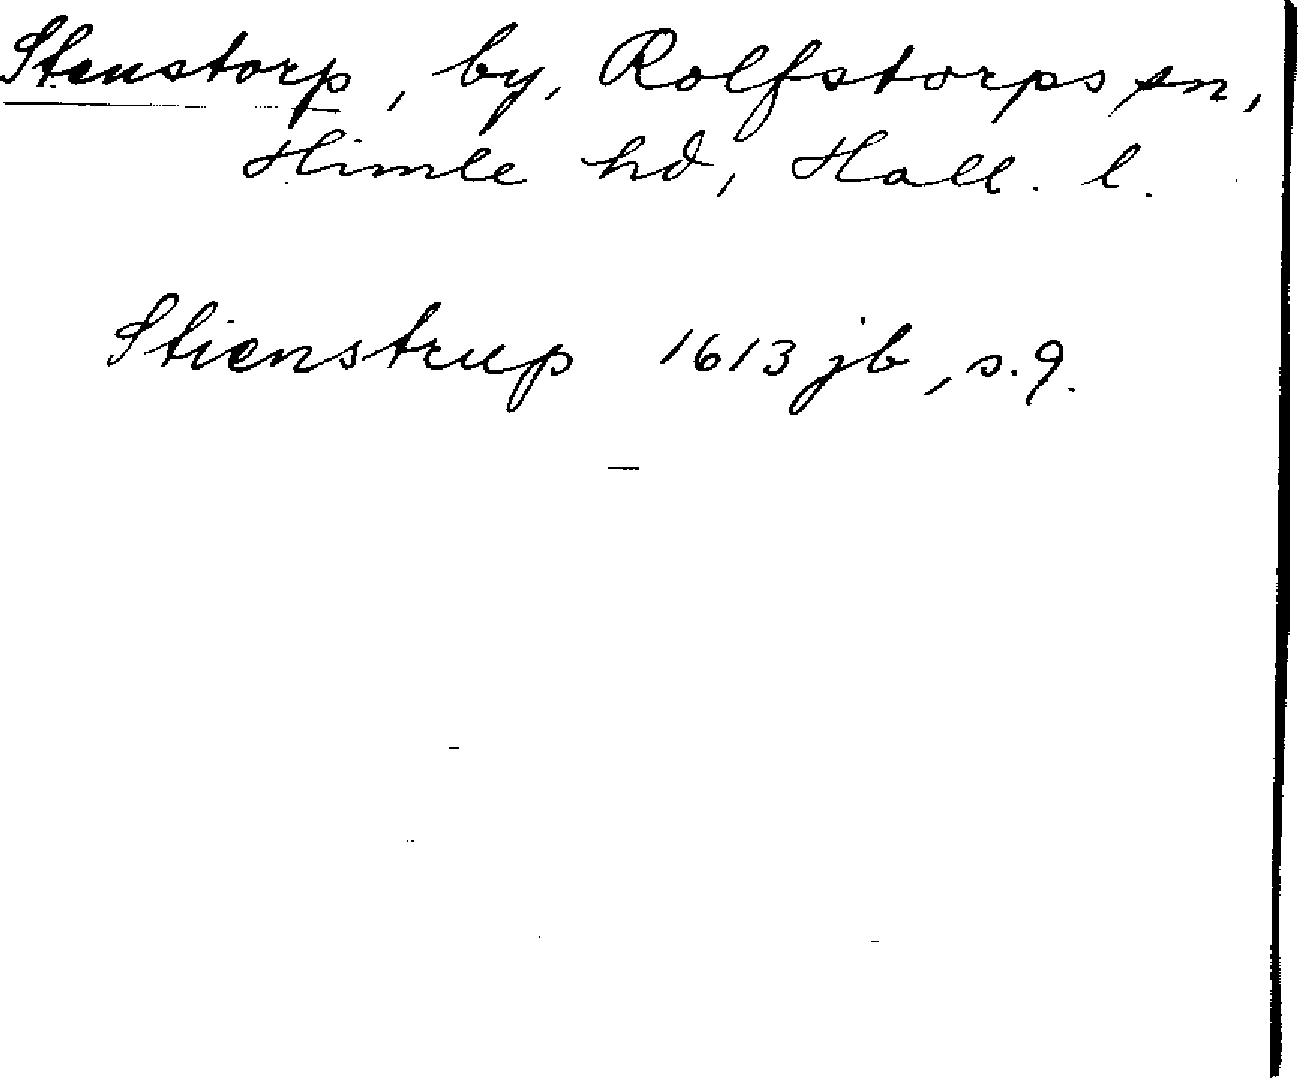 Stenstorp, by, Rolfstorps sn,
Himle hd, Hall. l.
Stienstrup 1613 jb, s. 9.